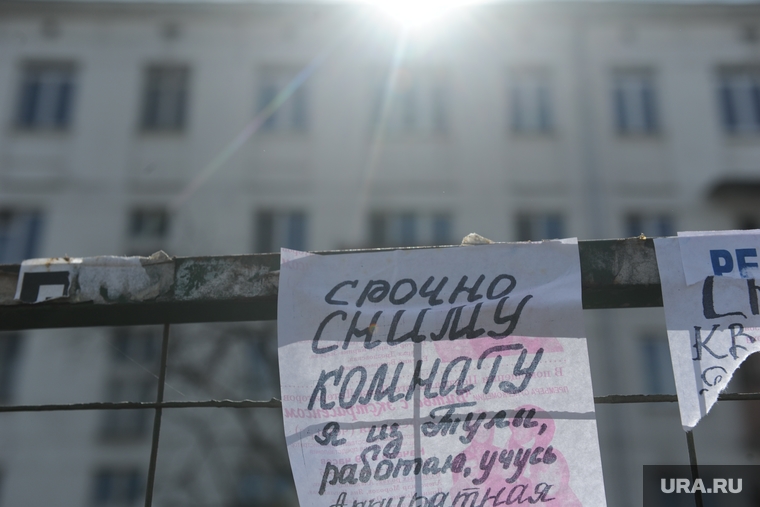 срочно
СНИМУ
КОМНАТУ
я из Тулы,
работаю, учусь
Аккуратная
РЕ
URA.RU